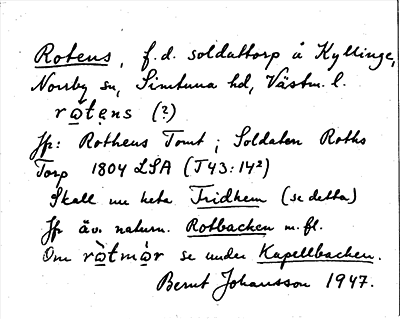 Rotens, f.d. soldattorp å Kyllinge,
Norrby sn, Simtuna hd, Västm. l.
rω̄́tẹns (?)
Jfr: Rotheus Tomt ; Soldaten Roths
Torp 1804 LSA (T43:14²)
Skall nu heta Fridhem (se detta)
Jfr äv. naturn. Rotbacken m.fl.
Om rὼtmὼr se under Kapellbacken.
Bernt Johansson 1947.